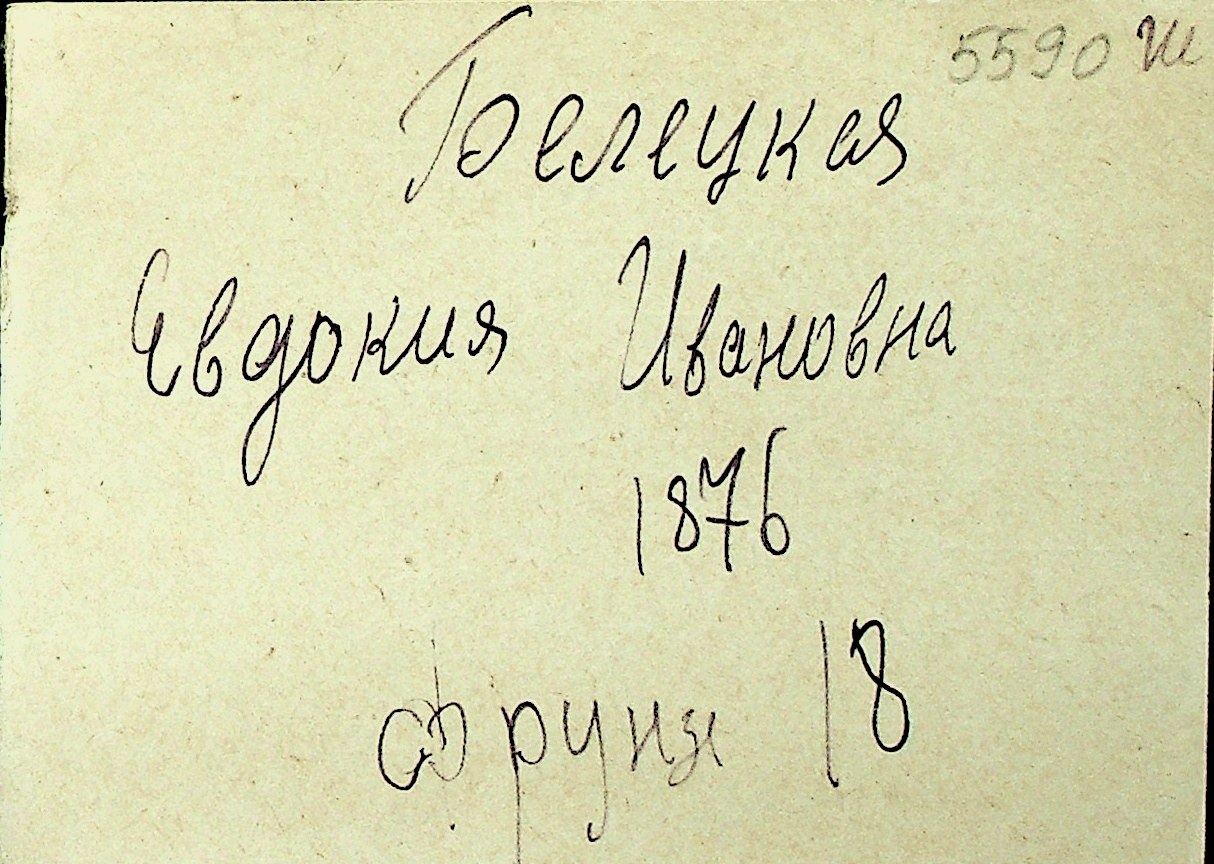 5590 Ш
Белецкая
Евдокия Ивановна
1876
Фрунзе 18